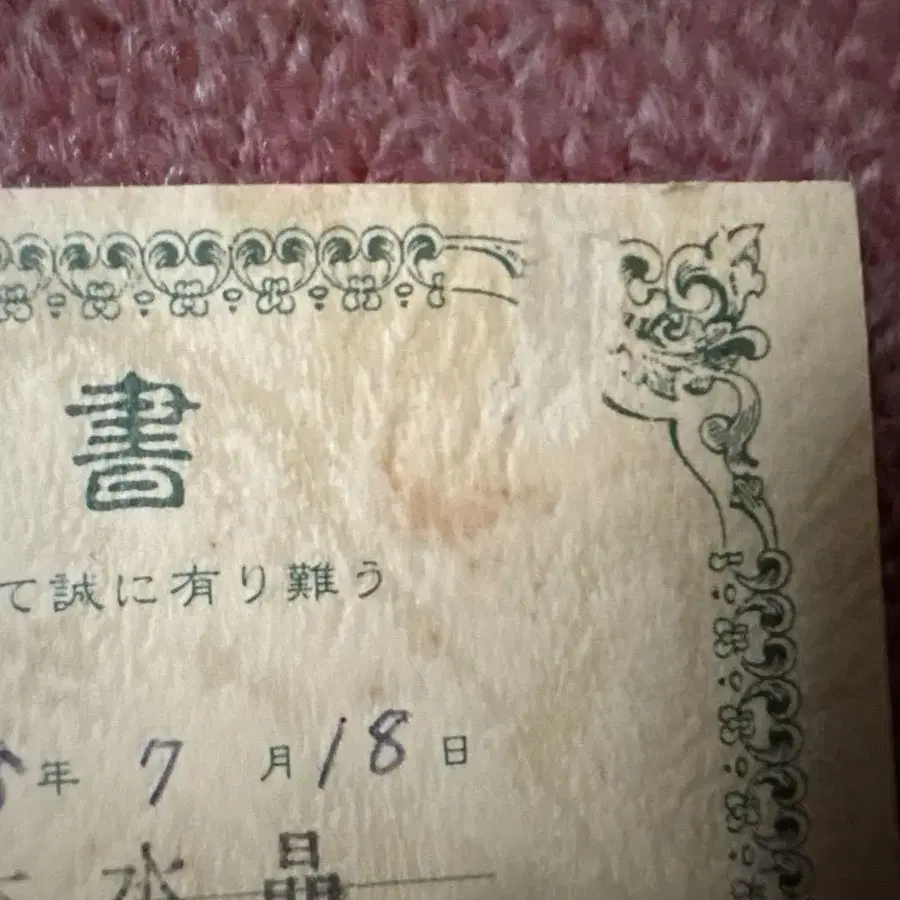 書
て誠に有り難う
年 7 月 18 日
水晶